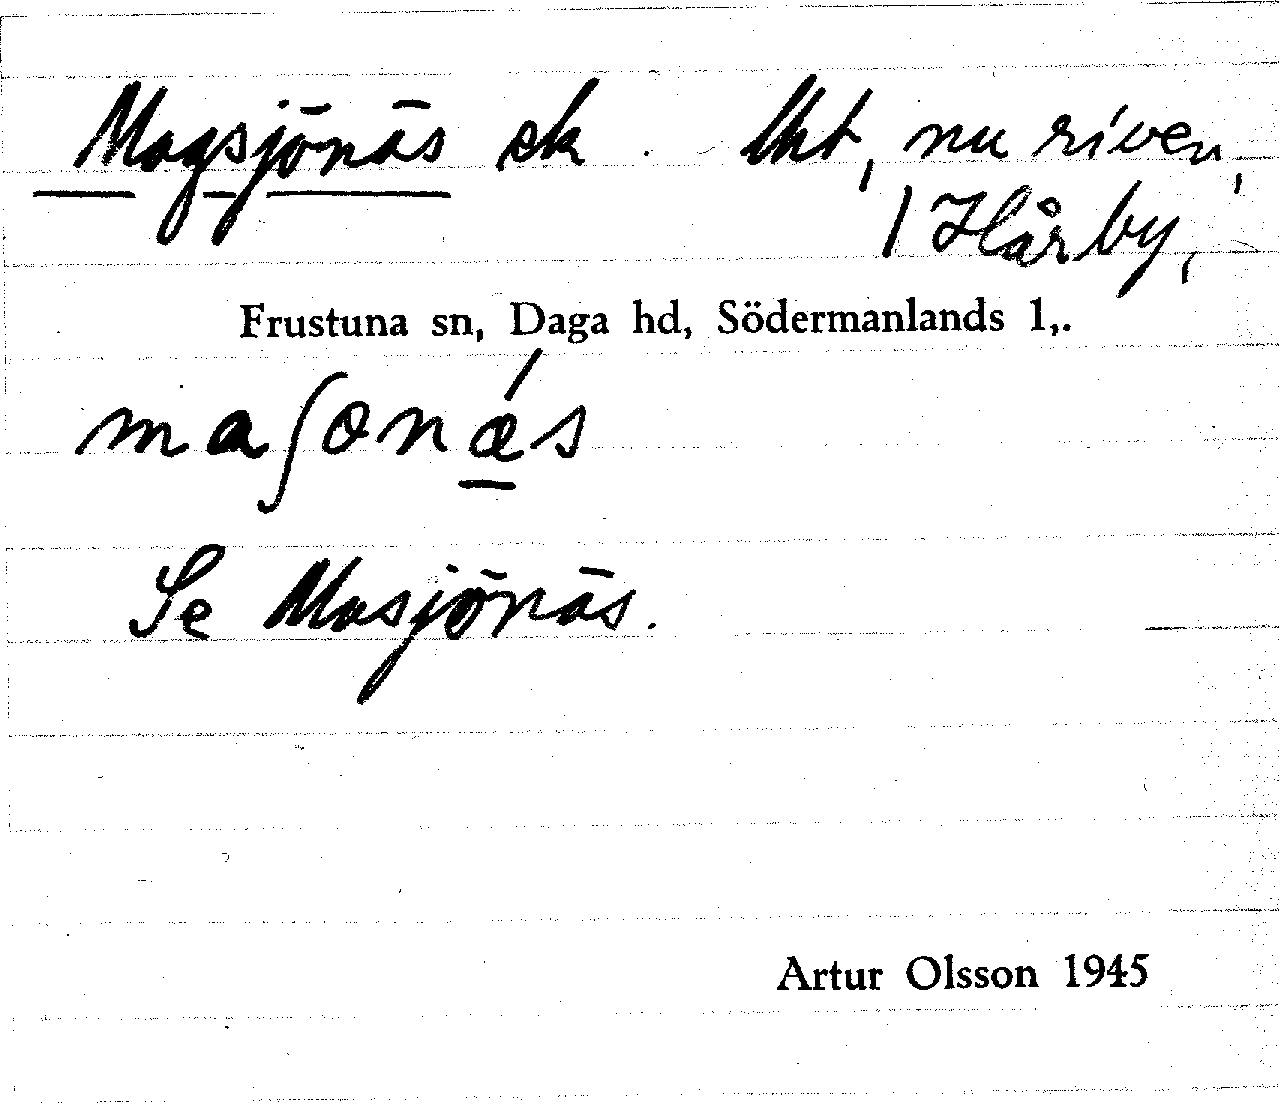 Magsjönäs ek. lht, nu riven,
/ Hårby,
Frustuna sn, Daga hd, Södermanlands l,.
maʃonæ´s
Se Masjönäs.
Artur Olsson 1945